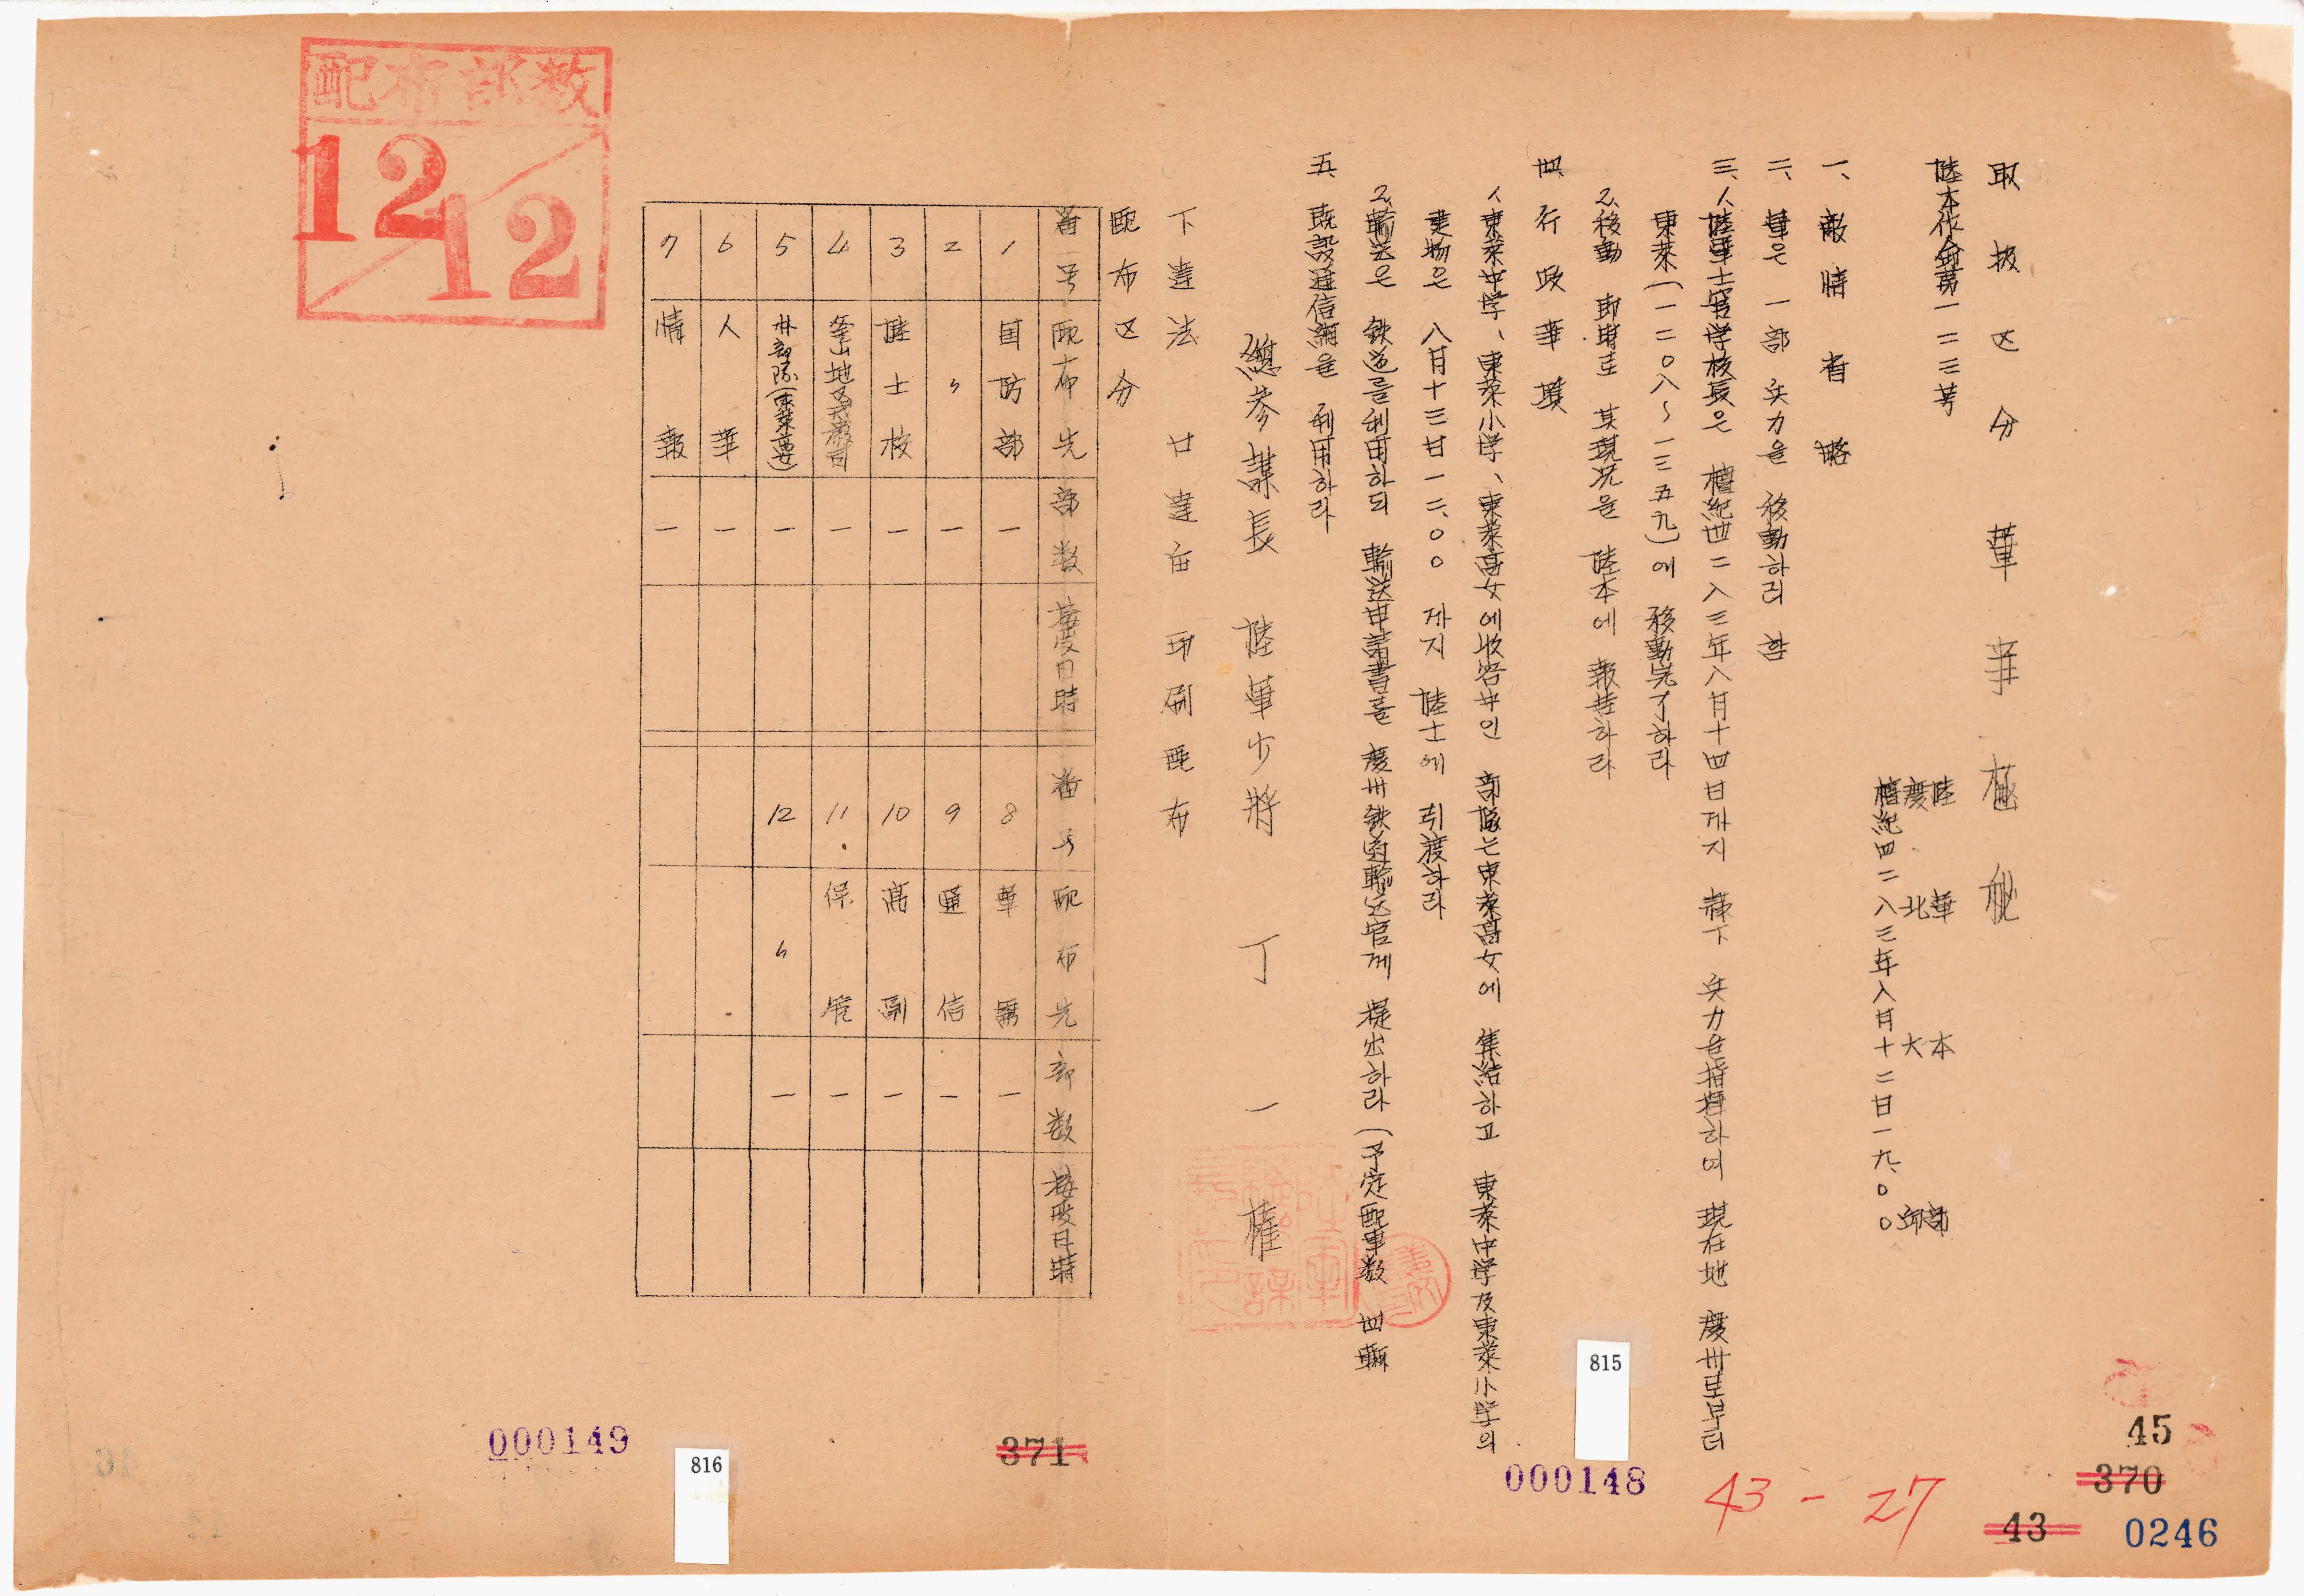 取扱区分 軍事極秘
陸本作命第一二三号
陸軍本部
慶北大邱
檀紀四二八三年八月十二日一九、〇〇
一、敵情 省略
二、軍은 一部 兵力을 移動하려 함
三、1、陸軍士官学校長은 檀紀四二八三年八月十四日까지 麾下 兵力을 指揮하여 現在地 慶州로부터
東萊(一二〇八~一三五九)에 移動完了하라
2、移動 即時로 其現况을 陸本에 報告하라
四、行政事項
1、東萊中学、東萊小学、東萊高女에 收容中인 部隊는 東萊高女에 集結하고 東萊中学及東萊小学의
建物은 八月十三日一二、〇〇까지 陸士에 引渡하라
2、輸送은 鉄道를 利用하되 輸送申請書를 慶州鉄道輸送官께 提出하라(予定配車数 四輛
五、既設通信網을 利用하라
總參謀長 陸軍少將 丁一權
下達法 廿達后 印刷配布
配布区分
番号 配布先 部数 接受日時 番号 配布先 部数 接受日時
1 国防部 一 8 軍需 一
2 〃 一 9 通信 一
3 陸士校 一 10 高副 一
4 釜山地区 一 11 保管 一
5 部隊(東萊 一 12 〃 一
6 人事 一
7 情報 一
配布部数
12/12
815
816
000149
371
000148
43-27
45
370
43
0246